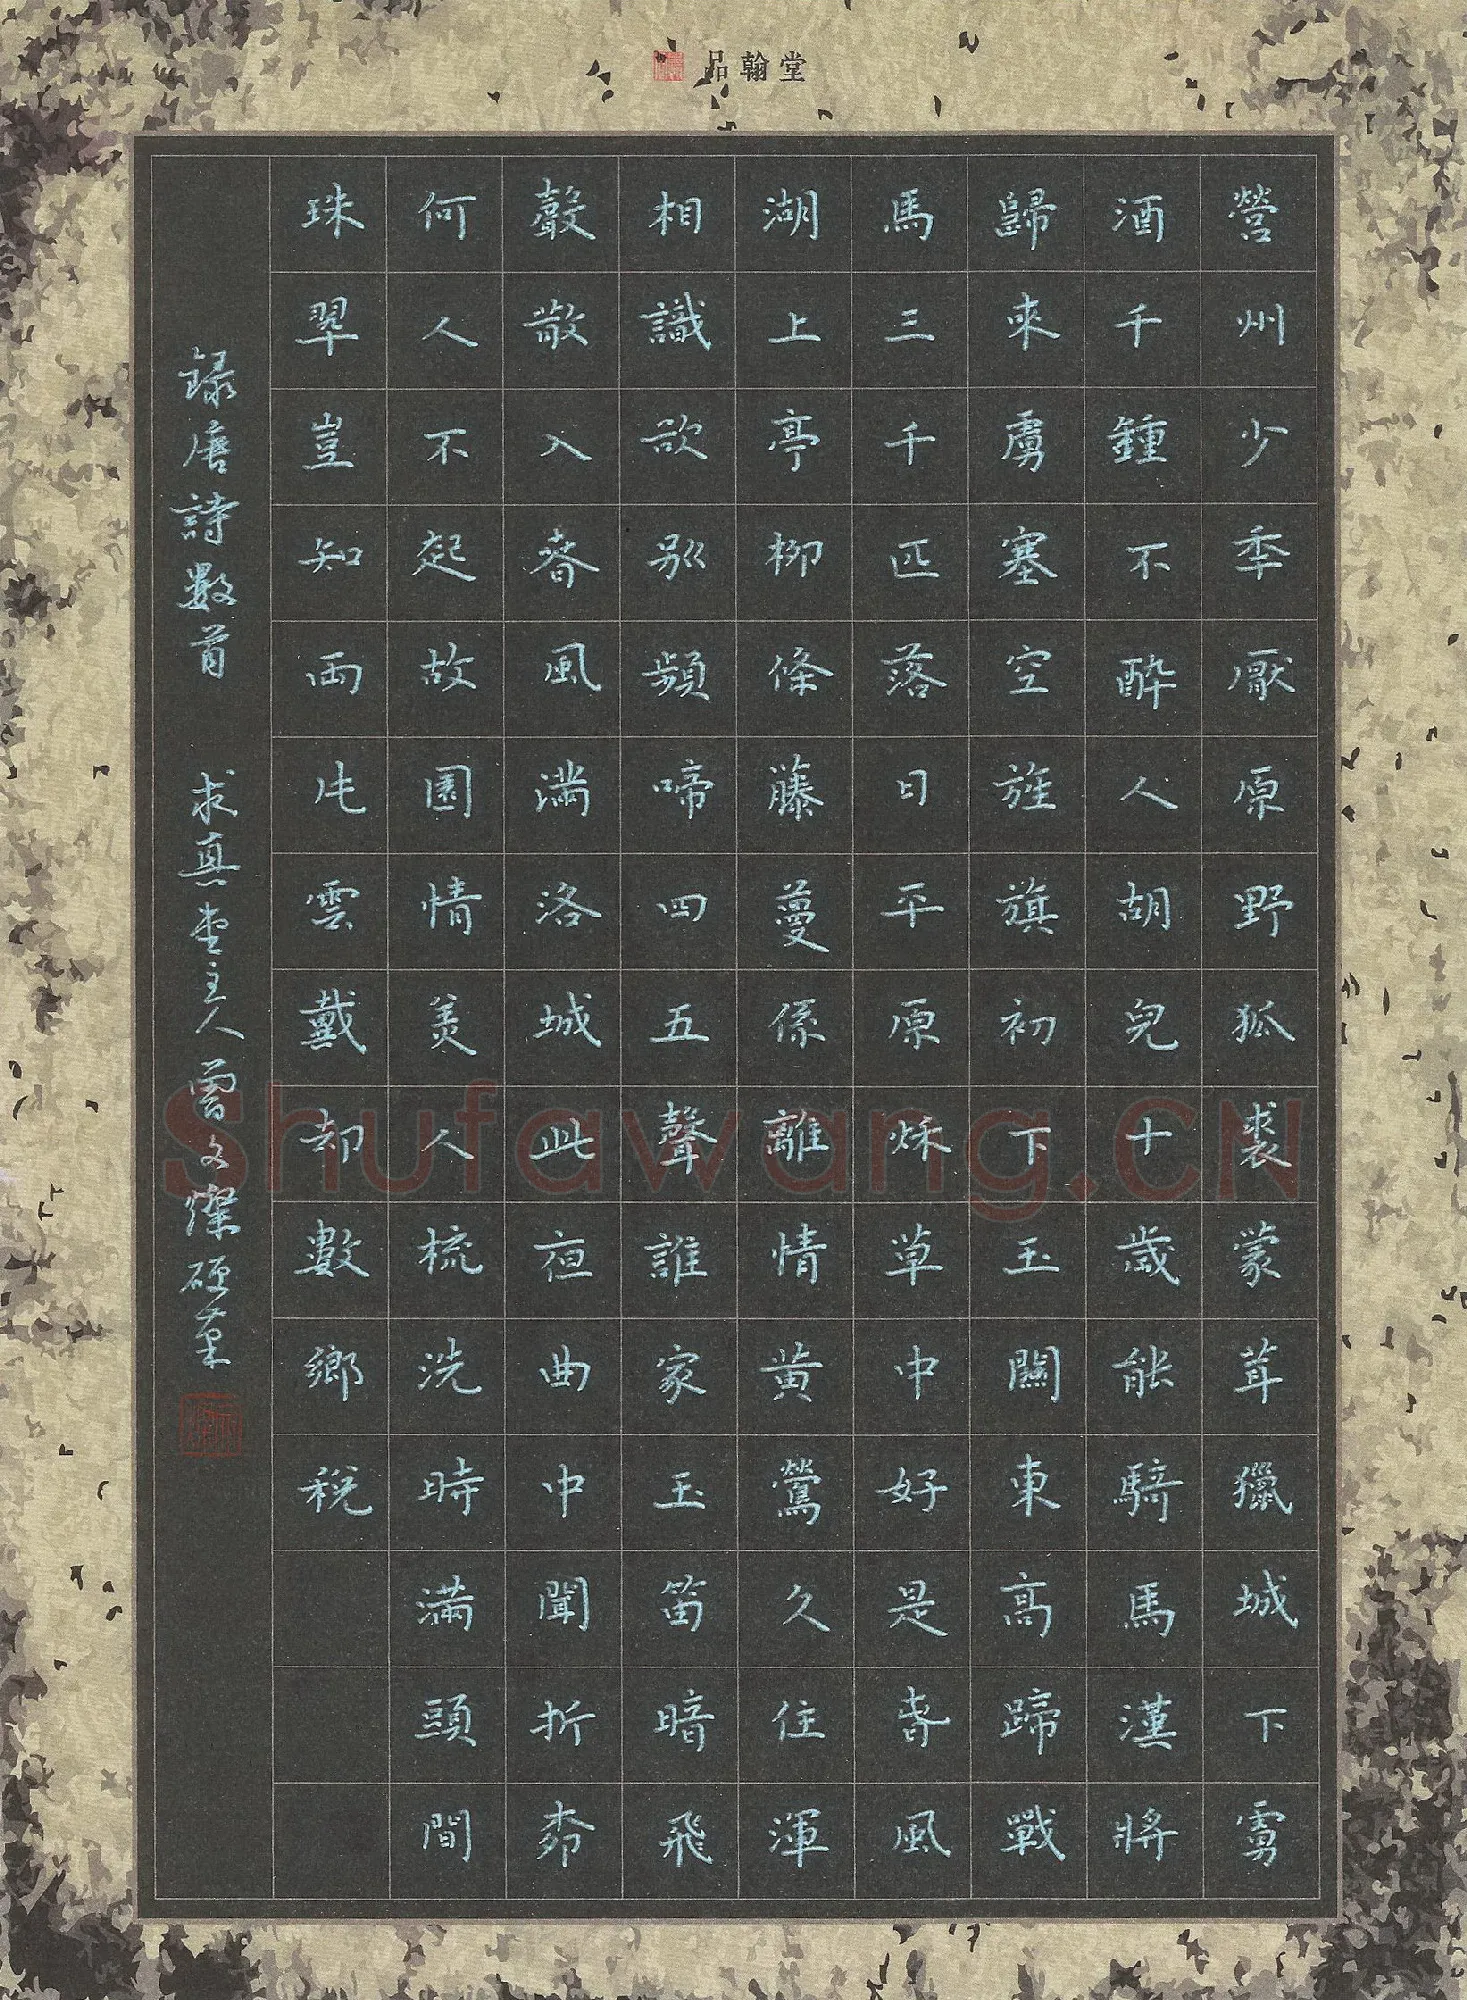 品翰堂
營州少秊厭原野狐裘蒙茸獵城下虜
酒千鍾不酔人胡兒十歲能騎馬漢將
歸來虜塞空旌旗初下玉關東高蹄戰
馬三千匹落日平原秌草中好是春風
湖上亭柳條藤蔓係離情黃鶯久住渾
相識欲別頻啼四五聲誰家玉笛暗飛
聲散入春風滿洛城此夜曲中聞折柳
何人不起故園情美人梳洗時滿頭間
珠翠豈知兩片雲戴却數鄉稅
録唐詩數首 求真堂主人曾文燦硬筆
Shufawang.CN